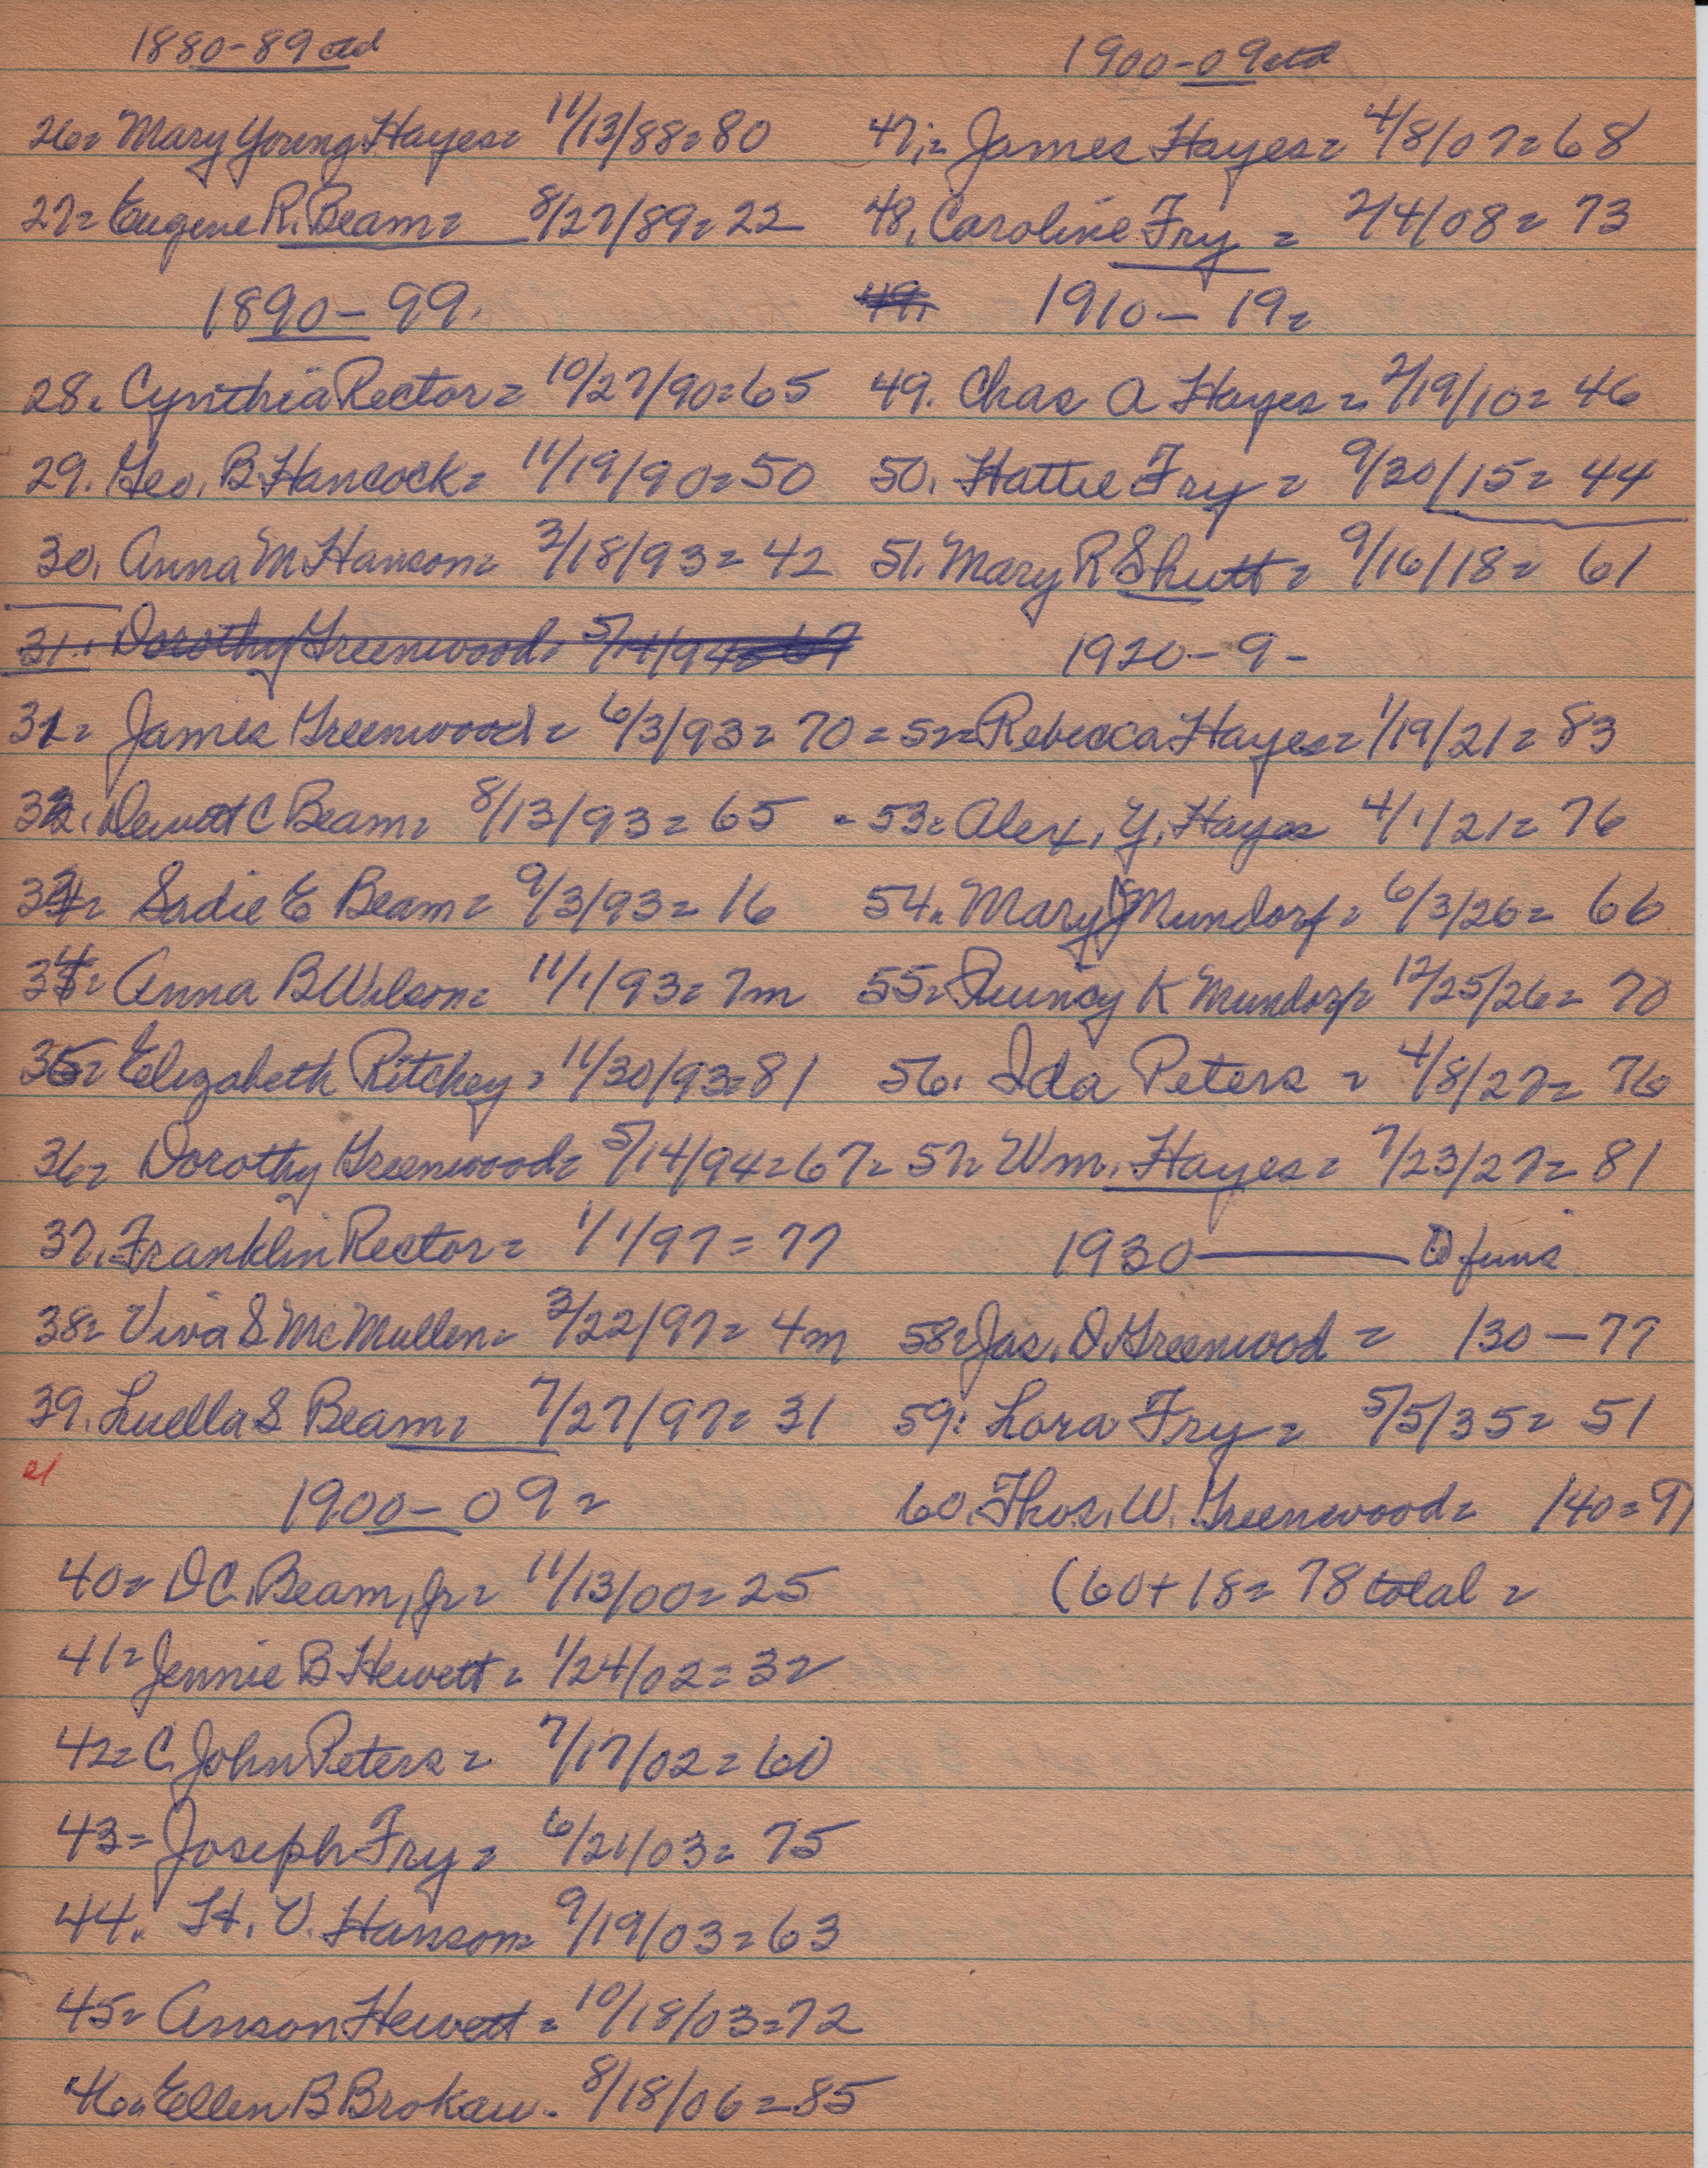 1880-89 ctd
26= Mary Young Hayes= 11/13/88= 80
27= Eugene R. Beam= 8/27/89= 22
1890-99.
28. Cynthia Rector= 10/27/90=65
29. Geo. B Hancock= 11/19/90=50
30. Anna M Hanson= 2/18/93= 42
31. Dorothy Greenwood= 5/14/94=67
31= James Greenwood= 6/3/93= 70=
32. Dewott C Beam= 8/13/93= 65
33= Sadie E Beam= 9/3/93= 16
34= Anna B Wilson= 11/1/93= 7m
35= Elizabeth Ritchey= 11/30/93=81
36= Dorothy Greenwood= 5/14/94=67=
37. Franklin Rector= 1/1/97= 77
38= Viva S McMullen= 2/22/97= 4m
39. Luella S Beam= 7/27/97= 31
1900-09=
40= DC. Beam, Jr= 11/13/00= 25
41= Jennie B Hewett= 1/24/02= 32
42= C. John Peters= 7/17/02= 60
43= Joseph Fry= 6/21/03= 75
44. H. V. Hanson= 9/19/03= 63
45= Anson Hewett= 10/18/03=72
46= Ellen B Brokaw- 8/18/06=85
1900-09 ctd
47.= James Hayes= 4/8/07= 68
48. Caroline Fry= 2/4/08= 73
49. 1910-19=
49. Chas A Hayes= 2/19/10= 46
50. Hattie Fry= 9/30/15= 44
51. Mary R Shutt= 9/16/18= 61
1920-9-
52= Rebecca Hayes= 1/19/21= 83
53= Alex. Y. Hayes 4/1/21= 76
54. Mary J Mundorf= 6/3/26= 66
55= Quincy K Mundorf= 12/25/26= 70
56. Ida Peters= 4/8/27= 76
57= Wm. Hayes= 7/23/27= 81
1930
58= Jas. D. Greenwood= 130-77
59: Lora Fry= 5/5/35= 51
60. Thos. W. Greenwood= 140=91
(60+18= 78 total=